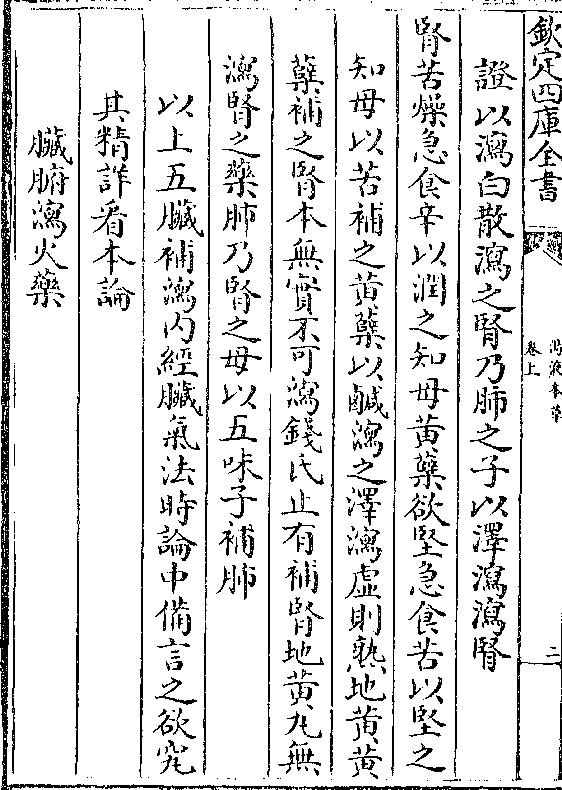 欽定四庫全書
湯液本草
卷上
二
證以瀉白散瀉之腎乃肺之子以澤瀉瀉腎
腎苦燥急食辛以潤之知母黃蘗欲堅急食苦以堅之
知母以苦補之黃蘗以鹹瀉之澤瀉虛則熟地黃黃
蘗補之腎本無實不可瀉錢氏止有補腎地黃丸無
瀉腎之藥肺乃腎之母以五味子補肺
以上五臟補瀉內經臟氣法時論中備言之欲究
其精詳看本論
臟腑瀉火藥